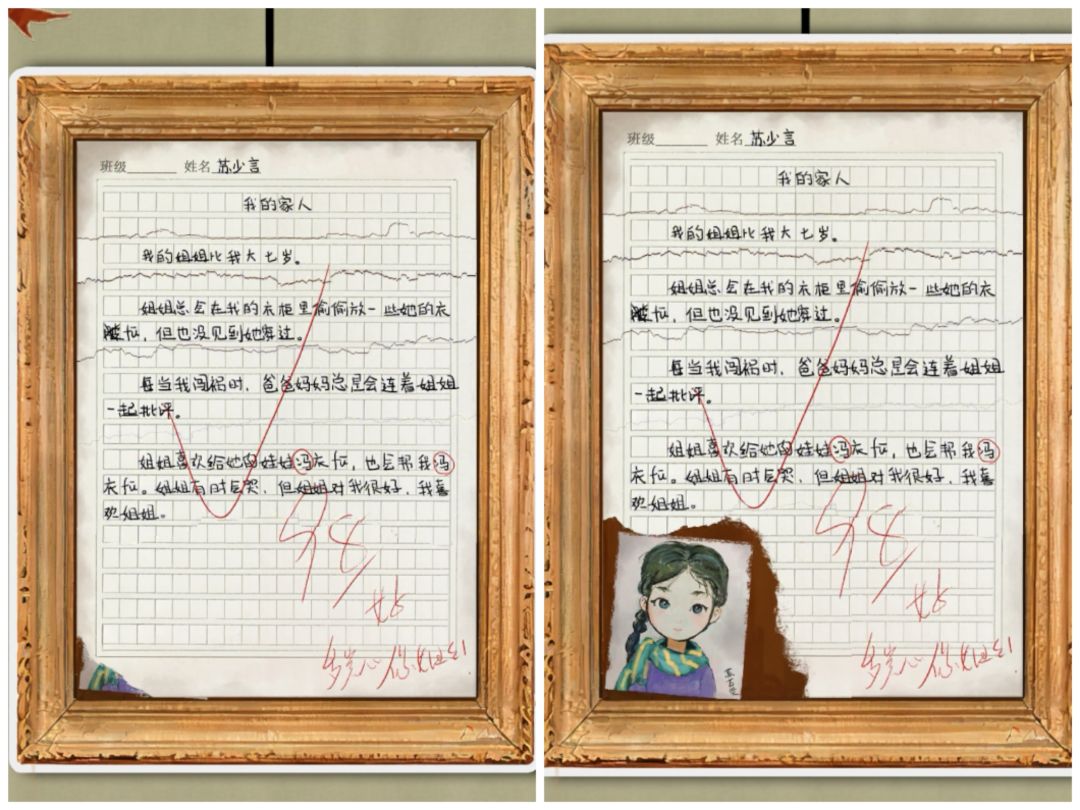 班级 姓名 苏少言
我的家人
我的姐姐比我大七岁。
姐姐总会在我的衣柜里偷偷放一些她的衣
服, 但也没见到她穿过。
每当我闯祸时, 爸爸妈妈总是会连着姐姐
一起批评。
姐姐喜欢给她的娃娃冯衣, 也会帮我冯
衣。姐姐有时会哭, 但姐姐对我很好, 我喜
欢姐姐。
98
好
多关心你姐姐!
班级 姓名 苏少言
我的家人
我的姐姐比我大七岁。
姐姐总会在我的衣柜里偷偷放一些她的衣
但也没见到她穿过。
每当我闯祸时, 爸爸妈妈总是会连着姐姐
一起批评。
姐姐喜欢给她的娃娃冯衣, 也会帮我冯
衣。姐姐有时会哭, 但姐姐对我很好, 我喜
欢姐姐。
98
好
多关心你姐姐!